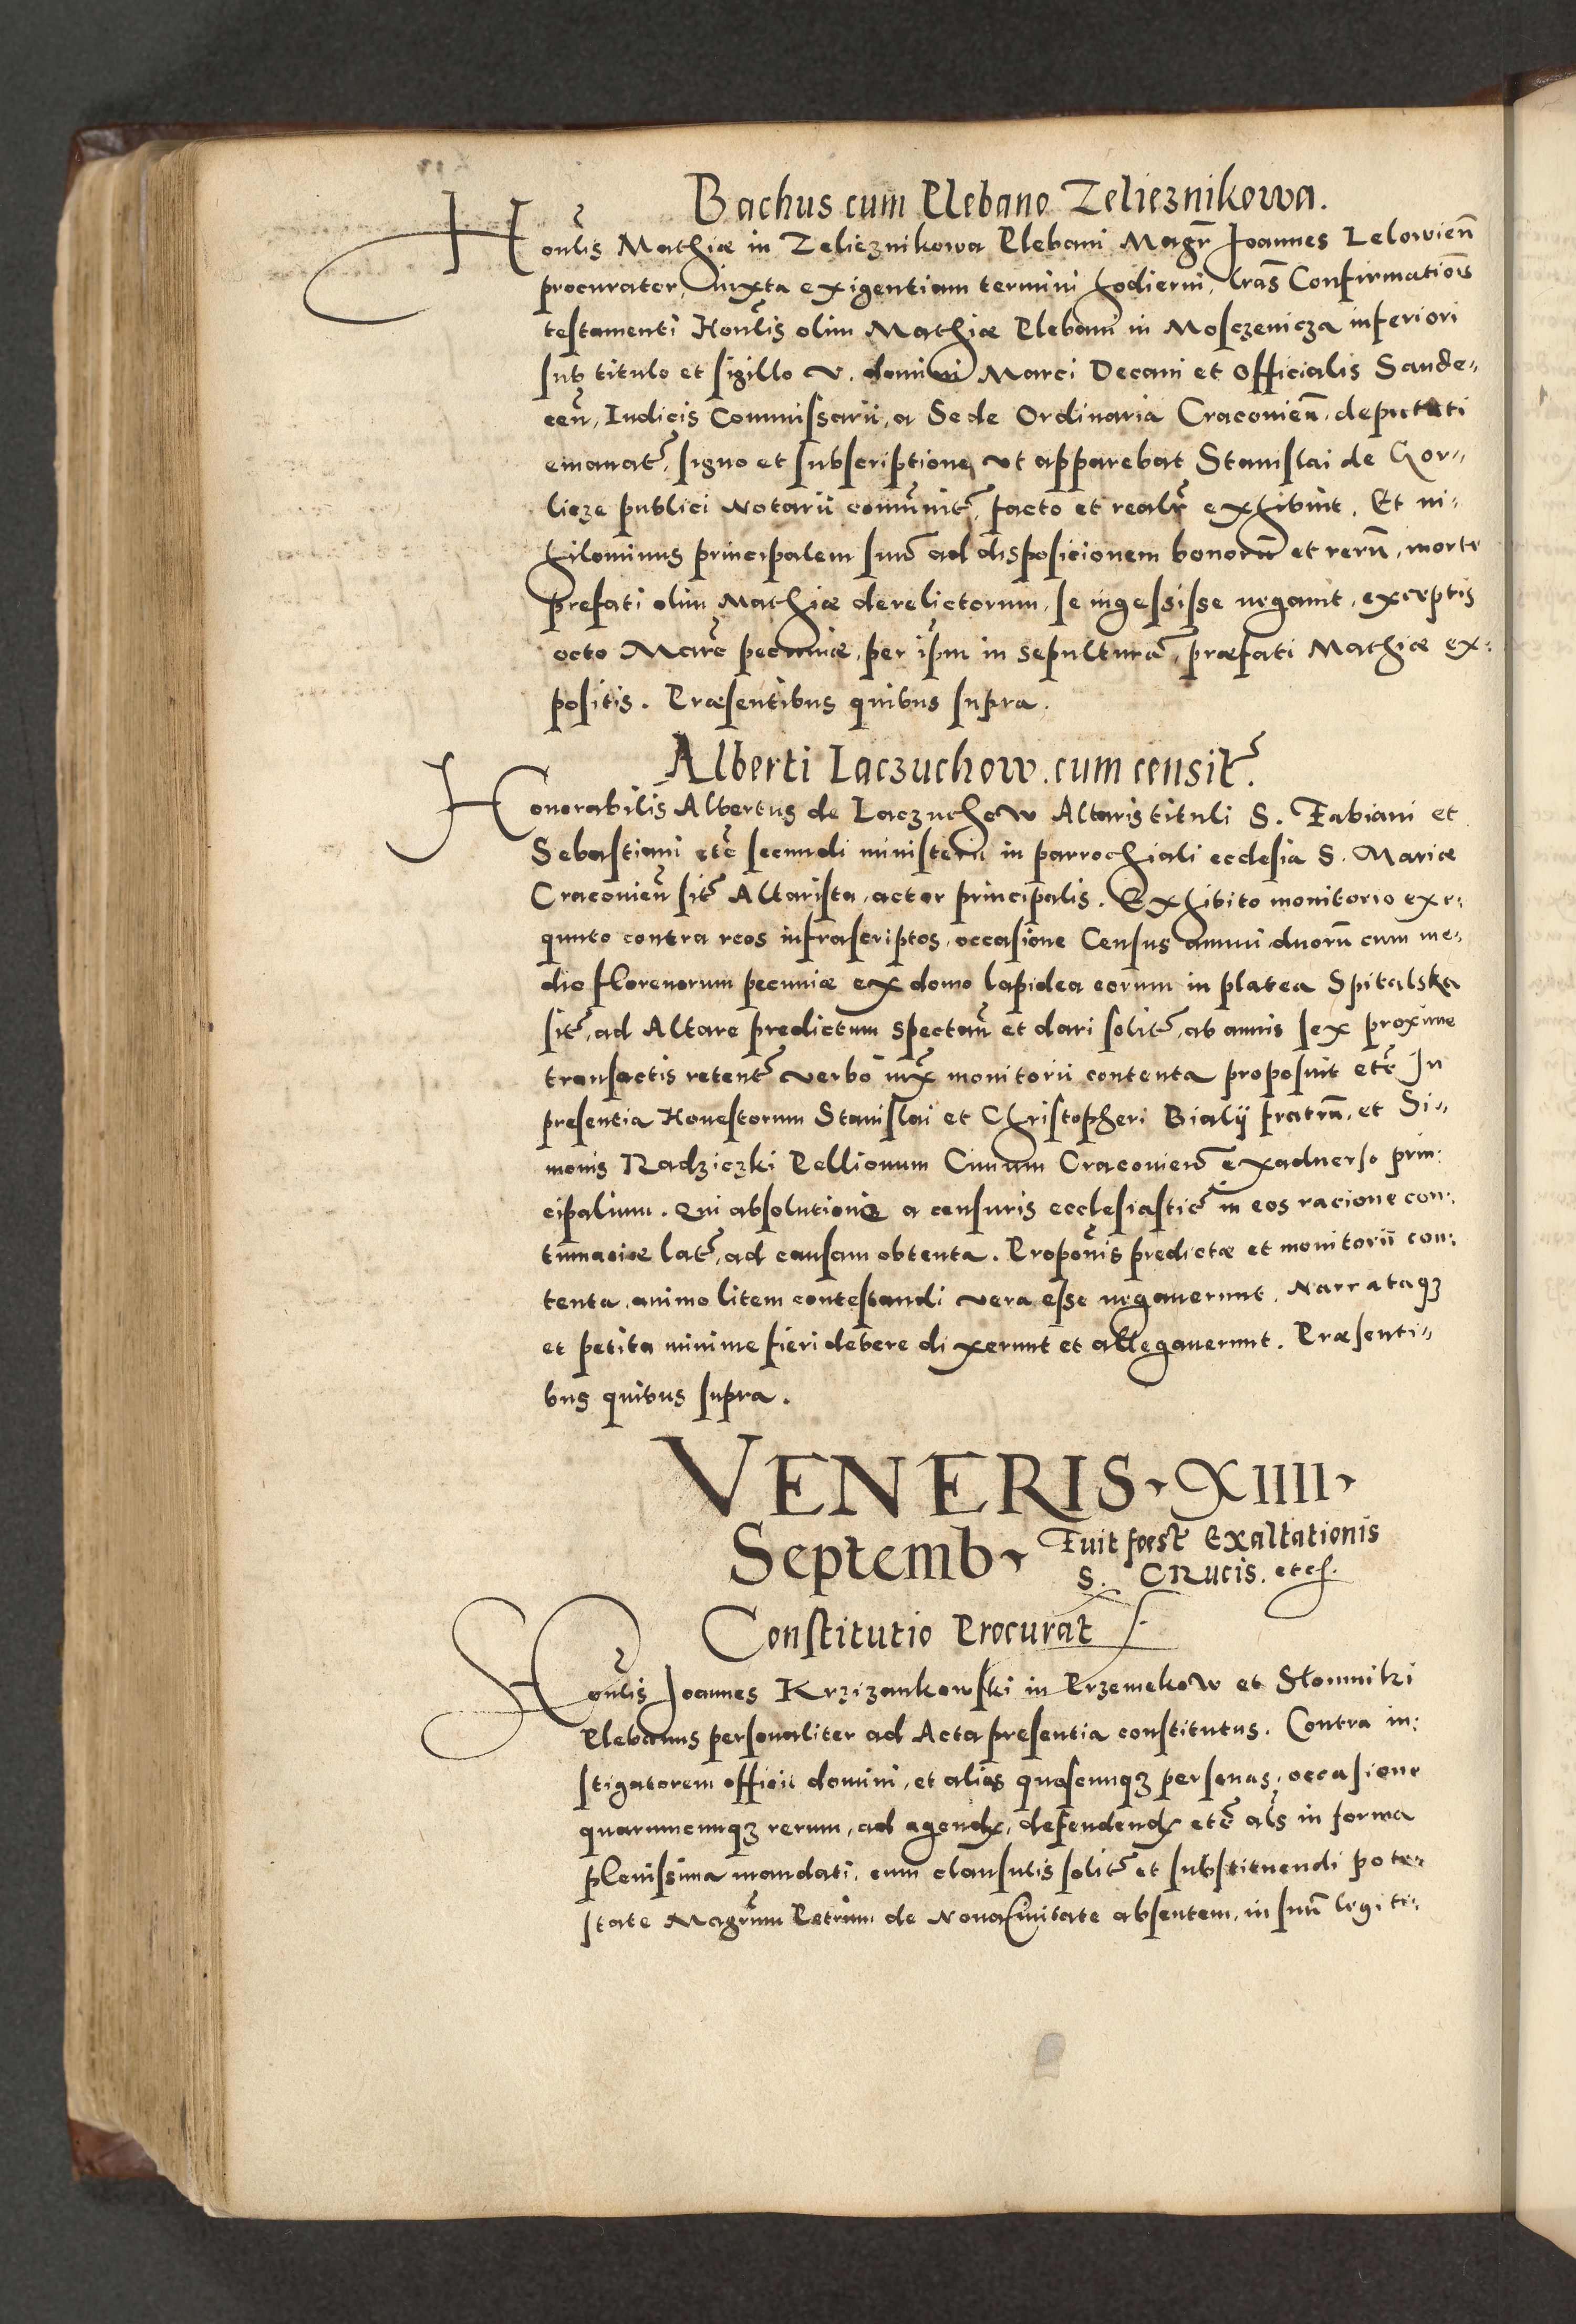 Bachus cum Plebano Zelieznikowa.
Honlis Mathiæ in Zelieznikowa Plebani Magr Joannes Lelowien̄
procurator, iuxta exigentiam termini hodierni, lras Confirmatiois
testamenti Honlis olim Mathiæ Plebani in Mosczenicza inferiori
sub titulo et sigillo v. domini Marci Decani et Officialis Sande„
cen̄, Iudicis Commissarii, a Sede Ordinaria Craconien̄, deputati
emanat, signo et subscriptione, vt apparebat Stanislai de Gor„
licze publici Notarii com̄unit, facto et realr exhibuit, Et ni„
hilominus principalem suū ad disposicionem bonorū et rerū, morte
prefati olim Mathiæ derelictorum, se ingessisse negauit, exceptis
octo Marc̄ pecuniæ, per ip̄m in sepulturā, præfati Mathiæ ex:
positis. Præsentibus quibus supra.
Alberti Laczuchow. cum censit.
Honorabilis Albertus de Laczuchow Altaris tituli S. Fabiani et
Sebastiani etc̄ secundi ministerii in parrochiali ecclesia S. Mariæ
Craconien̄ sit Altarista, actor principalis. Exhibito monitorio exe:
quuto contra reos infrascriptos, occasione Census annui duorū cum me:
dio florenorum pecuniæ ex domo lapidea eorum in platea Spitalska
sit, ad Altare predictum spectan̄ et dari solit, ab annis sex proxime
transactis retent verbo iux monitorii contenta proposuit etc̄ In
presentia Honestorum Stanislai et Christopheri Bialÿ fratrū, et Si„
monis Radziczki Pellionum Ciuium Craconien̄ exaduerso prin:
cipalium. Qui absolutione a censuris ecclesiastic in eos racione con:
tumaciæ lat, ad causam obtenta. Propōnis predictæ et monitorii con:
tenta, animo litem contestandi vera esse negauerunt. Narrataqꝫ
et petita minime fieri debere dixerunt et allegauerunt. Præsenti„
bus quibus supra.
VENERIS. XIIII.
Septemb. Fuit foest Exaltationis
S. CRucis. etc.
Constitutio Procurat
Honlis Joannes Krzizankowski in Przemekow et Słomniki
Plebanus personaliter ad Acta presentia constitutus. Contra in:
stigatorem officii domini, et alias quascunqꝫ personas, occasione
quarumcunqꝫ rerum, ad agend, defendend etc̄ als in forma
plenissima mandati, cum clausulis solit et substituendi pote:
state Magrum Petrum de Nouaciuitate absentem, in suū legiti: